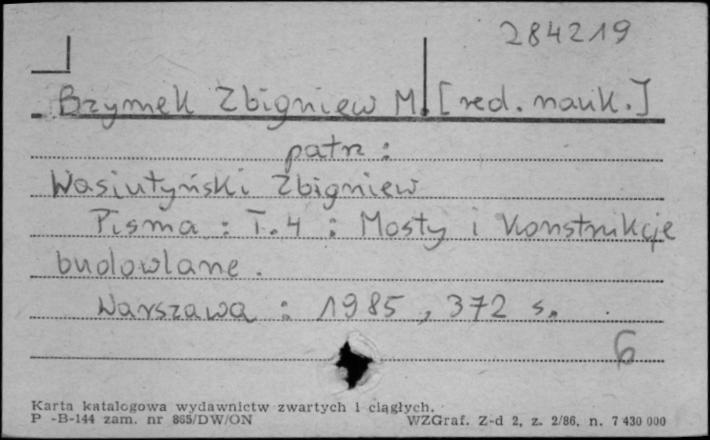 284219
Bzymek Zbigniew M. [red. nauk.]
patrz :
Wasiutyński Zbigniew
Pisma : T. 4 : Mosty i konstrukcje
budowlane .
Warszawa : 1985 , 372 s.
6
Karta katalogowa wydawnictw zwartych i ciągłych.
P -B-144 zam. nr 865/DW/ON WZGraf. Z-d 2, z. 2/86, n. 7 430 000